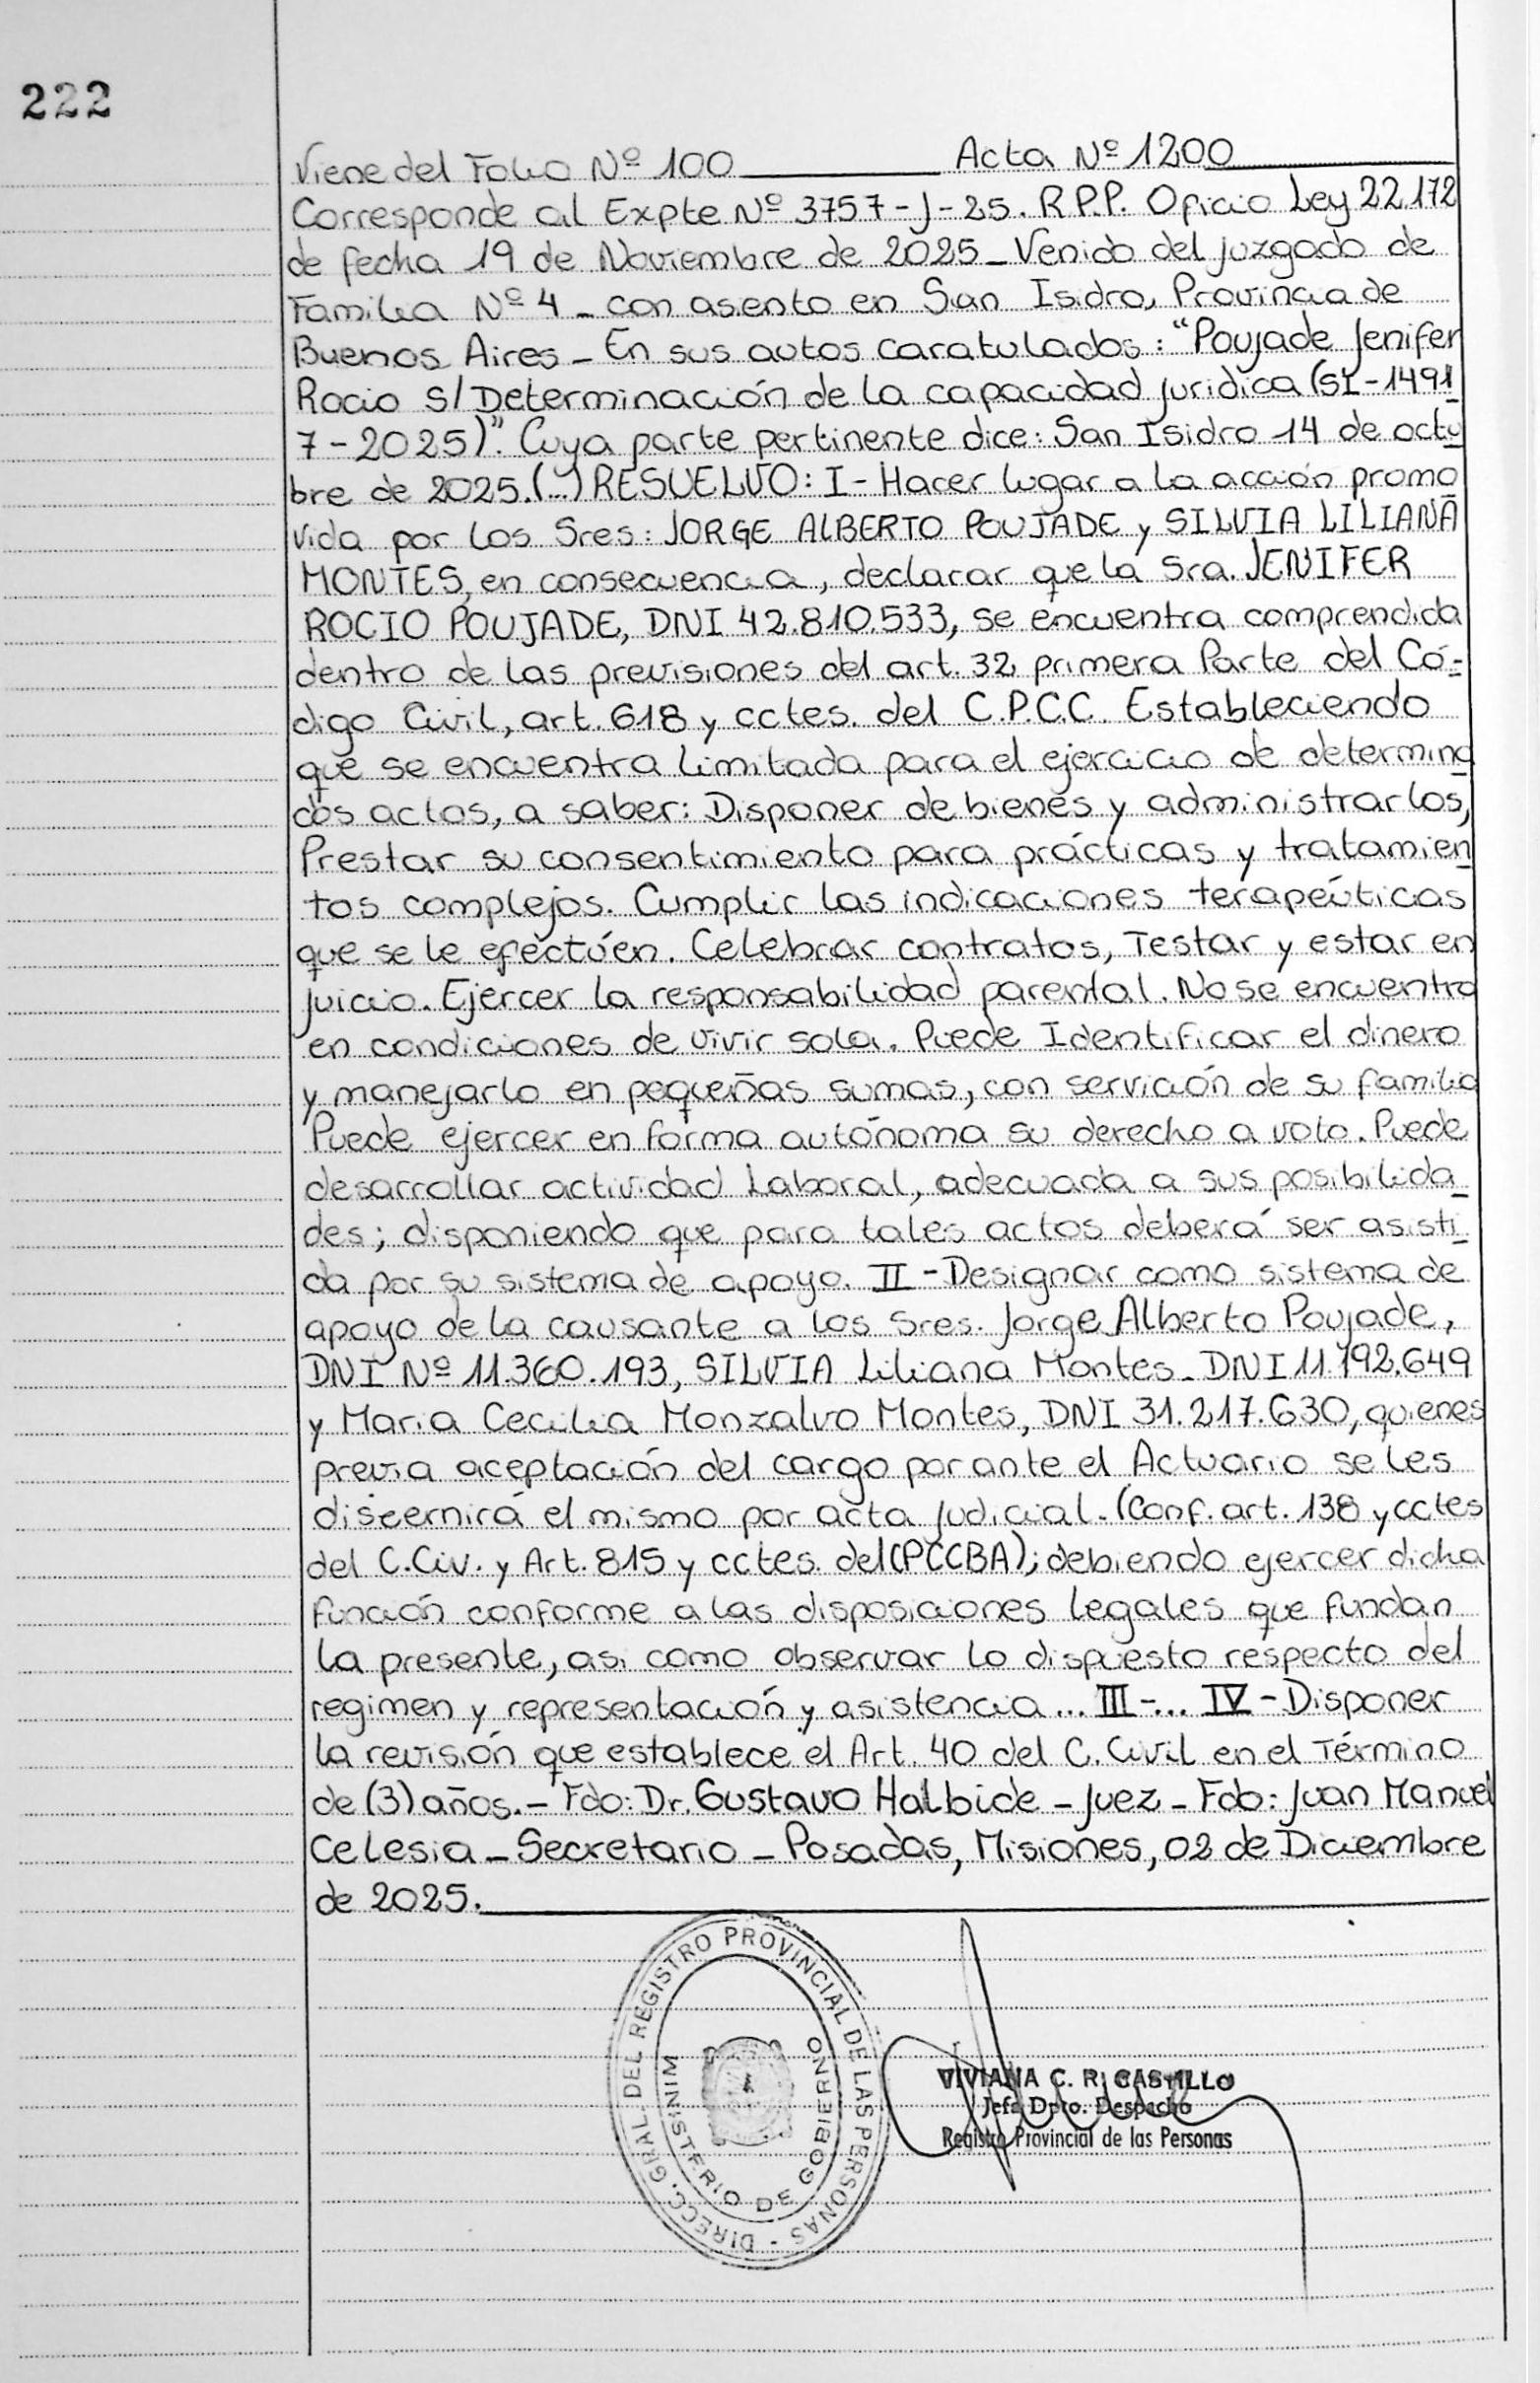 222
Viene del Folio Nº 100 Acta Nº 1200
Corresponde al Expte Nº 3757-J-25. R.P.P. Oficio Ley 22.172
de fecha 19 de Noviembre de 2025_Venido del juzgado de
Familia Nº 4 _ con asiento en San Isidro, Provincia de
Buenos Aires _ En sus autos caratulados: "Poujade Jenifer
Rocio S/Determinación de la capacidad juridica (SI-1491
7-2025)". Cuya parte pertinente dice: San Isidro 14 de octu
bre de 2025.(...) RESUELVO: I- Hacer lugar a la acción promo
vida por los Sres: JORGE ALBERTO POUJADE y SILVIA LILIANA
MONTES, en consecuencia, declarar que la Sra. JENIFER
ROCIO POUJADE, DNI 42.810.533, se encuentra comprendida
dentro de las previsiones del art. 32, primera Parte del Có-
digo Civil, art. 618 y cctes. del C.P.C.C. Estableciendo
que se encuentra limitada para el ejercicio de determina
dos actos, a saber: Disponer de bienes y administrarlos,
Prestar su consentimiento para prácticas y tratamien
tos complejos. Cumplir las indicaciones terapeúticas
que se le efectúen. Celebrar contratos, Testar y estar en
juicio. Ejercer la responsabilidad parental. No se encuentra
en condiciones de vivir sola. Puede Identificar el dinero
y manejarlo en pequeñas sumas, con servición de su familia
Puede ejercer en forma autónoma su derecho a voto. Puede
desarrollar actividad laboral, adecuada a sus posibilida_
des; disponiendo que para tales actos deberá ser asisti_
da por su sistema de apoyo. II - Designar como sistema de
apoyo de la causante a los Sres. Jorge Alberto Poujade,
DNI Nº 11.360.193, SILVIA Liliana Montes_ DNI 11.792.649
y Maria Cecilia Monzalvo Montes, DNI 31.217.630, quienes
previa aceptación del cargo por ante el Actuario se les
discernirá el mismo por acta judicial. (Conf. art. 138 y cctes
del C.Civ. y Art. 815 y cctes. del CPCCBA); debiendo ejercer dicha
función conforme a las disposiciones legales que fundan
la presente, asi como observar lo dispuesto respecto del
regimen y representación y asistencia... III-... IV - Disponer
la revisión que establece el Art. 40 del C. Civil en el Término
de (3) años.- Fdo: Dr. Gustavo Halbide - Juez - Fdo: Juan Manuel
Celesia _ Secretario _ Posadas, Misiones, 02 de Diciembre
de 2025.
DIRECC. GRAL. DEL REGISTRO PROVINCIAL DE LAS PERSONAS -
MINISTERIO DE GOBIERNO
VIVIANA C. R. CASTILLO
Jefa Dpto. Despacho
Registro Provincial de las Personas